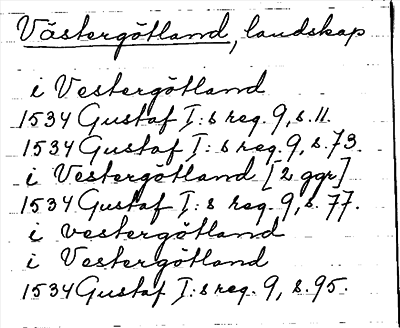 Västergötland, landskap
i Vestergötland
1534 Gustaf I:s reg. 9, s. 11.
1534 Gustaf I:s reg. 9, s. 73.
i Vestergötland [2 ggr]
1534 Gustaf I:s reg. 9, s. 77.
i vestergötland
i Vestergötland
1534 Gustaf I:s reg. 9, s. 95.